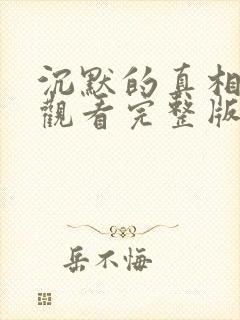 沉默的真相
觀看完整版
岳不悔